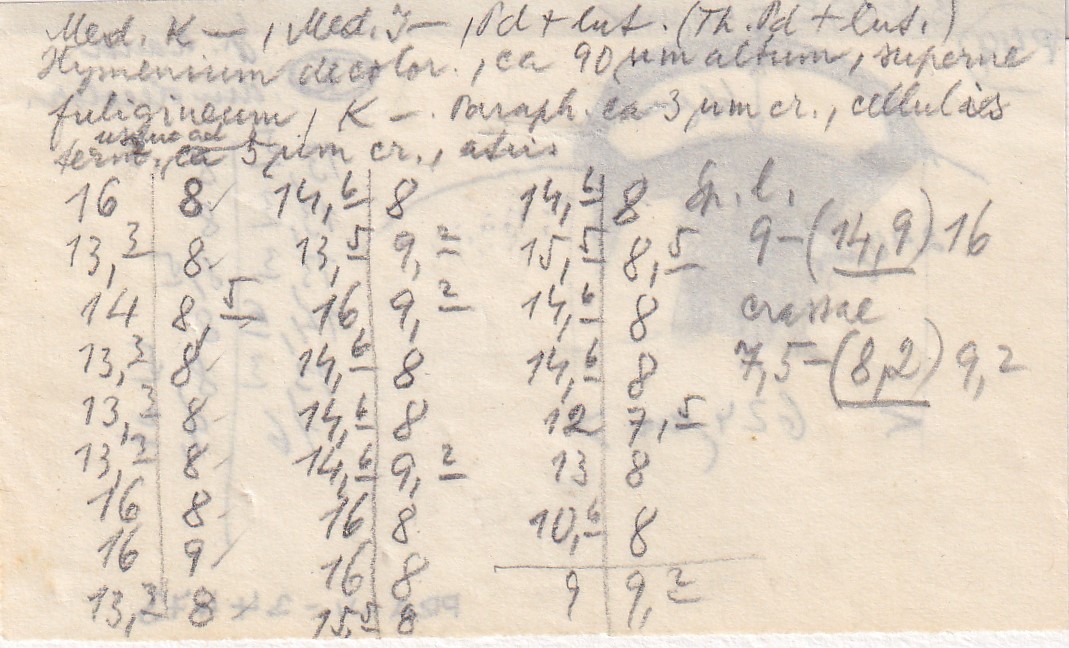 Med. K — , Med. J — , Pd + lut. (Th. Pd + lut.)
Hymenium decolor., ca 90 µm altum, superne
fuligineum, K —. Paraph. ca 3 µm cr., cellulis
usque ad
term. ca 5 µm cr.,
16 8 14,6 8 14,6 8 Sp. l.
13,3 8 13,5 9,2 15,5 8,5 9–(14,9) 16
14 8,5 16 9,2 14,6 8 crassae
13,3 8 14,6 8 14,6 8 7,5–(8,2) 9,2
13,3 8 14,6 8 12 7,5
13,3 8 14,6 9,2 13 8
16 8 16 8 10,6 8
16 9 16 8 9 9,2
13,3 8 15,5 8